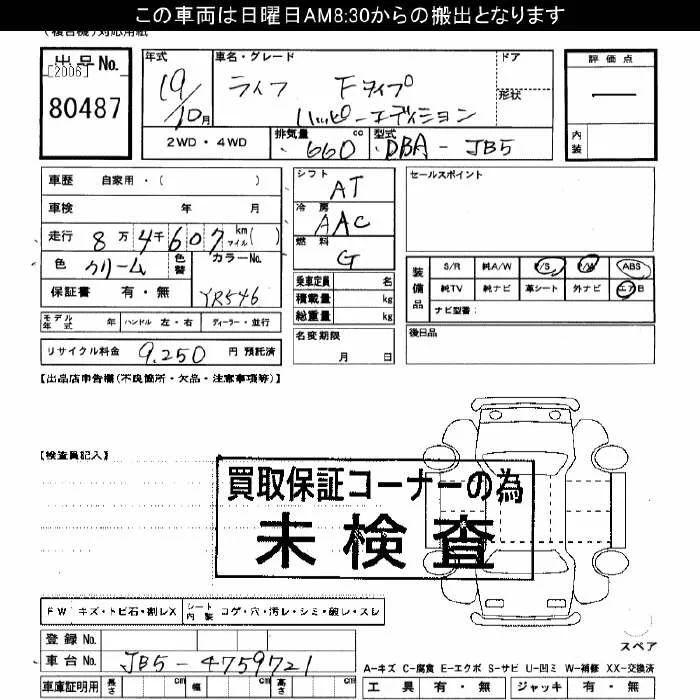 この車両は日曜日AM8:30からの搬出となります
(複合機)対応用紙
出品No.
[2006]
80487
年式
19/10月
車名・グレード
ライフ Fタイプ
ハッピーエディション
ドア
形状
評価点
—
内装
2WD・4WD
排気量
660 cc
型式
DBA-JB5
車歴 自家用・( )
車検 年 月
走行 8万4千607 km マイル( )
色 クリーム 色替
カラーNo.
YR546
保証書 有・無
シフト
AT
冷房
AAC
燃料
G
乗車定員 名
積載量 kg
総重量 kg
セールスポイント
装備品
S/R 純A/W P/S P/W ABS
純TV 純ナビ 革シート 外ナビ エアB
ナビ型番:
モデル年式 年 ハンドル 左・右 ディーラー・並行
名変期限
月 日
後日品
リサイクル料金 9,250 円 預託済
【出品店申告欄(不良箇所・欠品・注意事項等)】
【検査員記入】
買取保証コーナーの為
未検査
FW キズ・トビ石・割レX シート内装 コゲ・穴・汚レ・シミ・破レ・スレ
登録No.
車台No. JB5-4759721
スペア
A-キズ C-腐食 E-エクボ S-サビ U-凹ミ W-補修 XX-交換済
車庫証明用 長さ cm 幅 cm 高さ cm
工具 有・無 ジャッキ 有・無